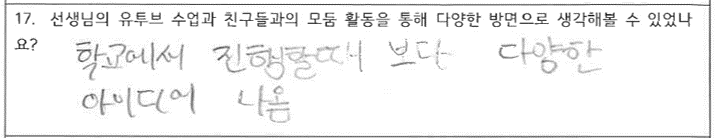 17. 선생님의 유투브 수업과 친구들과의 모둠 활동을 통해 다양한 방면으로 생각해볼 수 있었나
요?
학교에서 진행할때 보다 다양한
아이디어 나옴